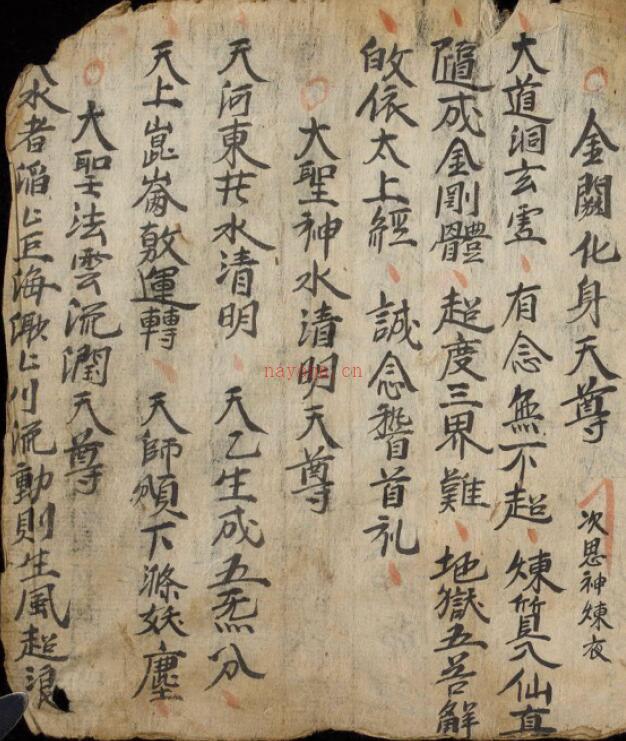 金闕化身天尊 次思神煉夜
大道洞玄虛 有念無不超 煉質入仙真
隨成金剛體 超度三界難 地獄五苦解
皈依太上經 誠念稽首礼
大聖神水清明天尊
天河東井水清明 天乙生成五炁分
天上崑崙敖運轉 天師頒下滌妖塵
大聖法雲流潤天尊
水者滔〻巨海 川流動則生風起浪
nayona.cn